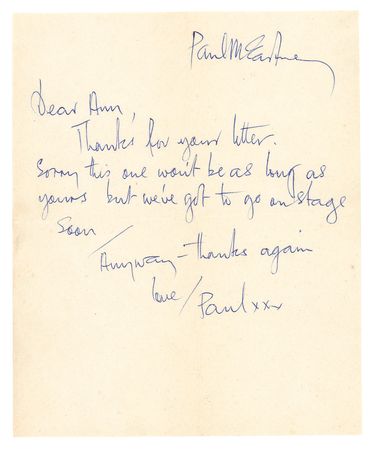 Paul McCartney
Dear Ann,
Thanks for your letter.
Sorry this one won't be as long as
yours but we've got to go on stage
soon
/ Anyway – thanks again
love / Paul xxx